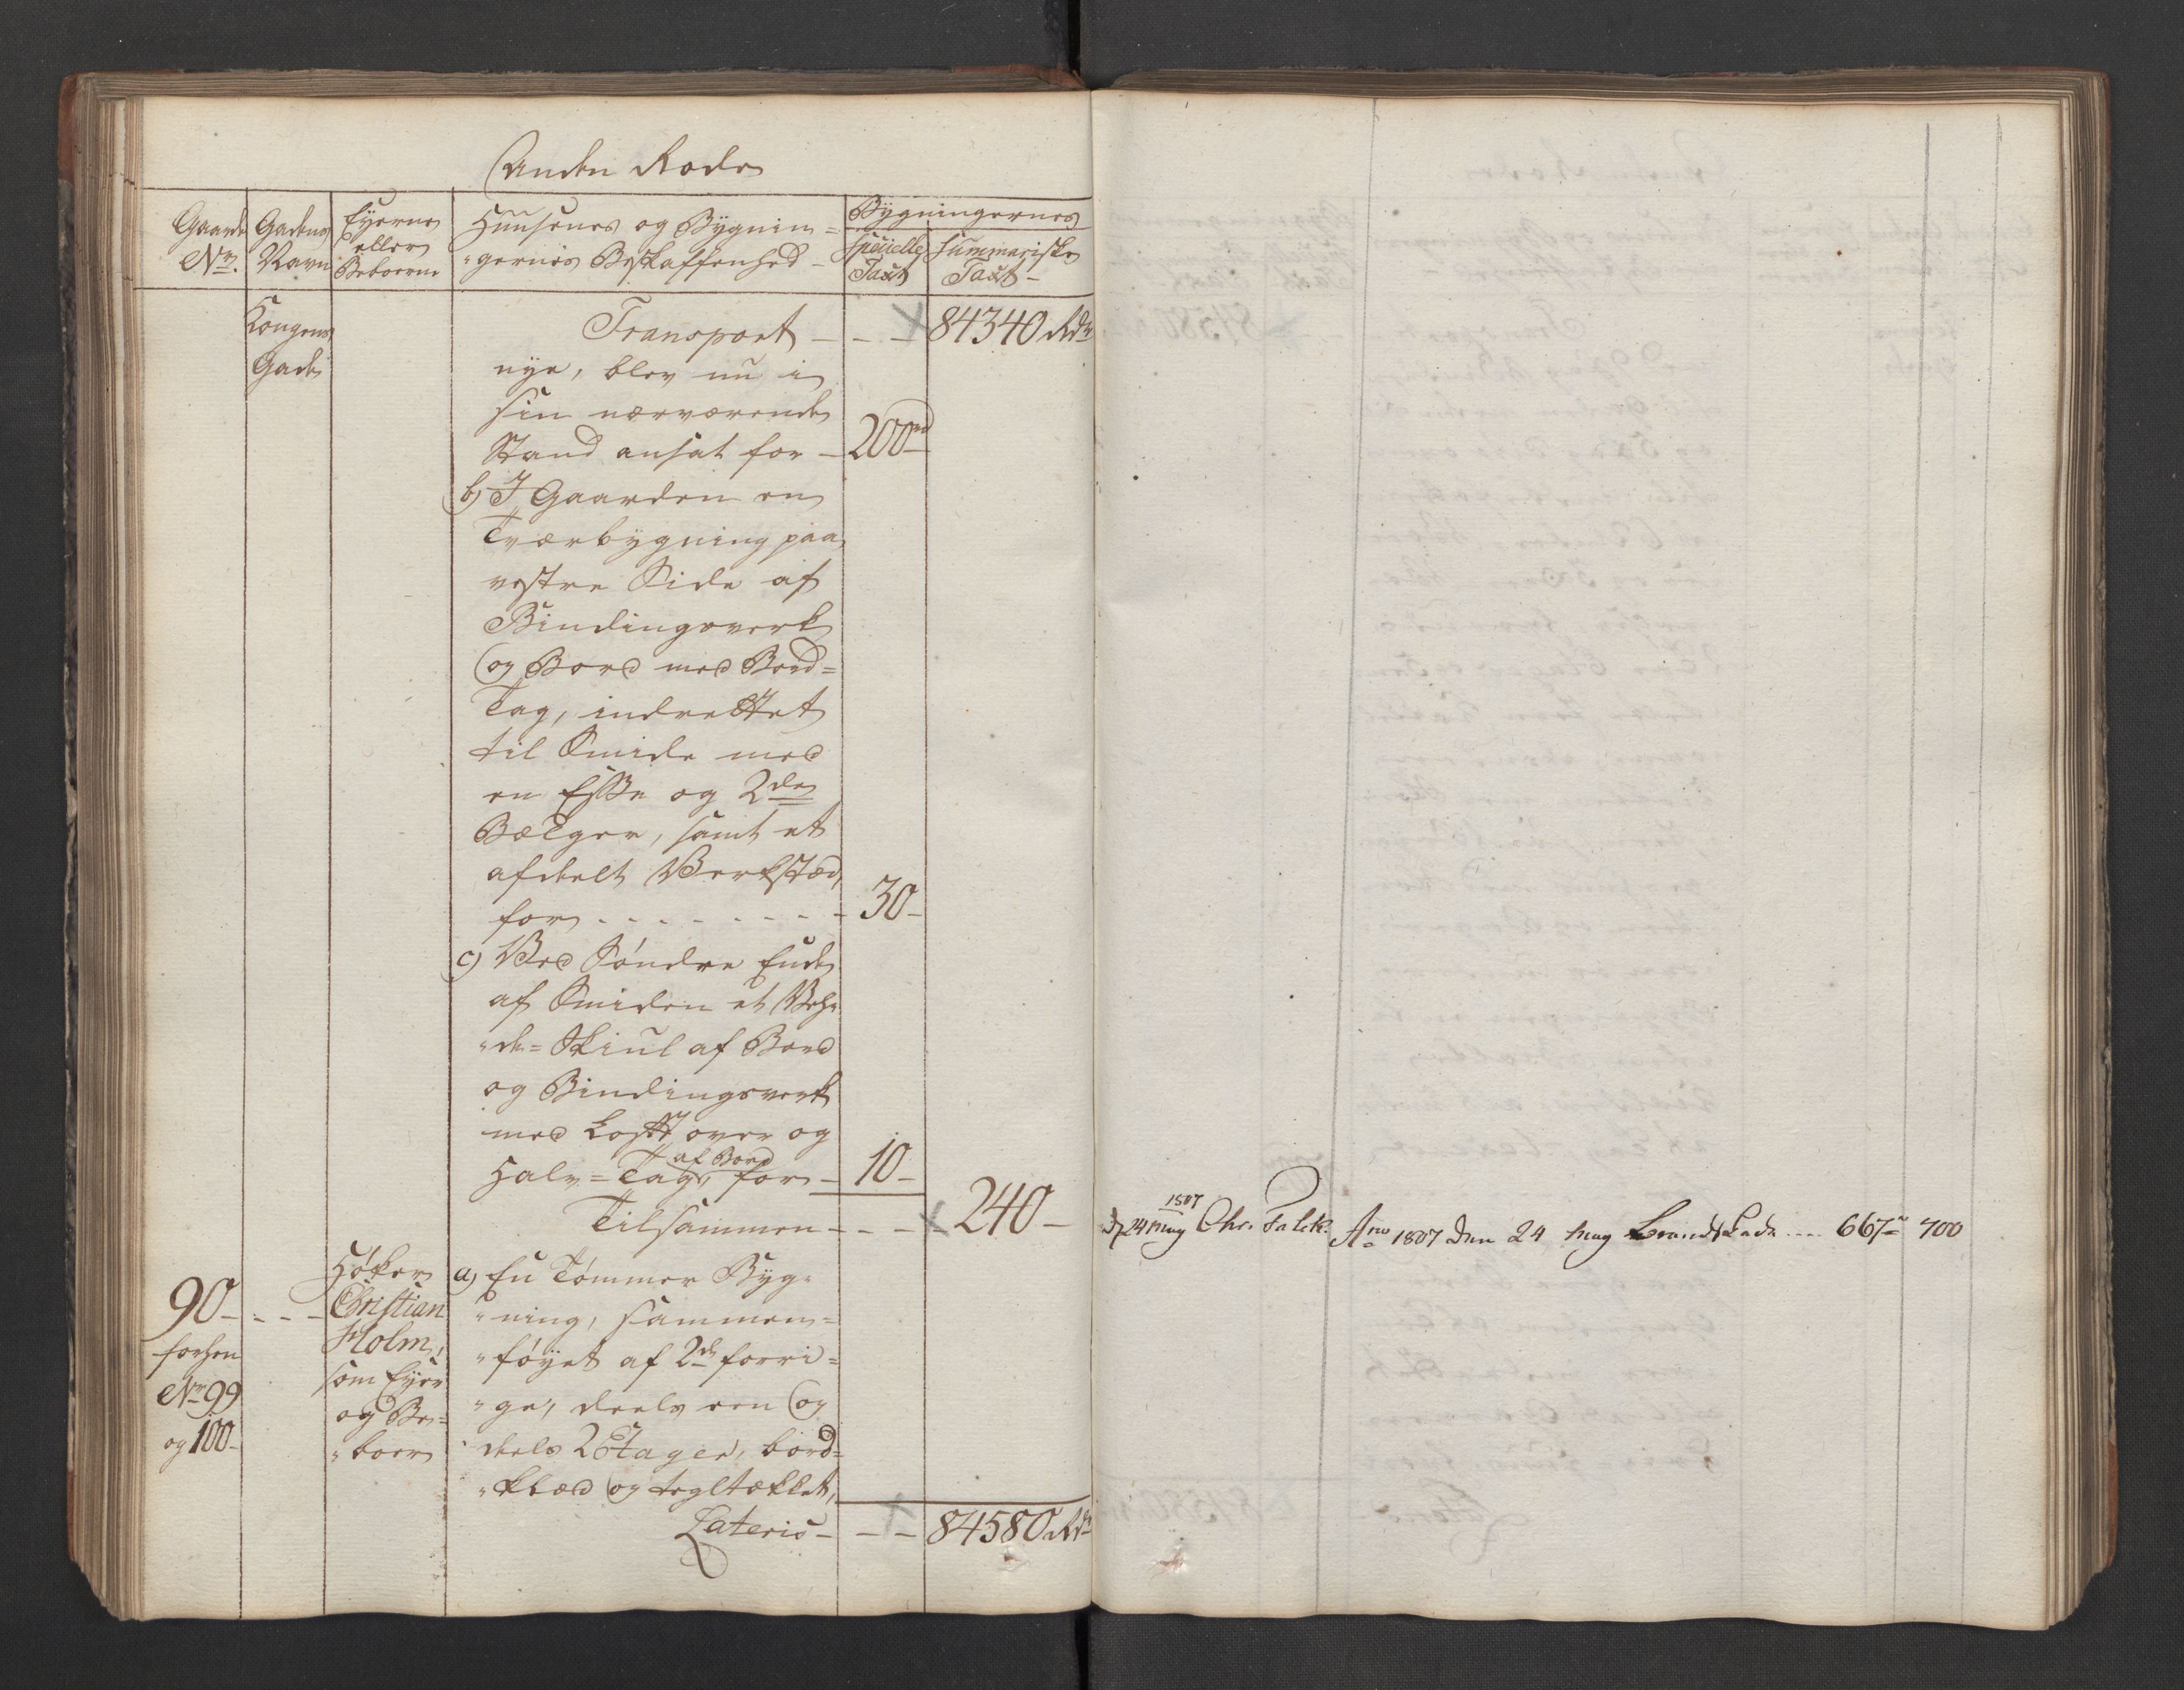 Anden Rode
Gaards No. | Gadens Navn | Eyerne eller Beboerne | Huusenes og Bygnin= "gernes Beskaffenhed | Bygningernes Specielle Taxt | Summariske Taxt
Kongens Gade
Transport - - - 84340 Rdr
nye, blev nu i
sin nærværende
Stand ansat for - 200 rd
b) I Gaarden en
Tværbygning paa
vestre Side af
Bindingsverk
og Bord med Bord=
Tag, indrettet
til Smide med
en Esse og 2de
Bælger, samt et
afdeelt Verksted,
for - - - - - - - 30 -
c) Ved Søndre Ende
af Smiden et Vehe
"de=Skiul af Bord
og Bindingsverk
med Loft over og
Halv=Tag af Bord, for - 10 -
Tilsammen - - - 240 -
90 - - - -
forhen
No 99
og 100 -
Høker
Christian
Holm,
som Eyer
og Be=
"boer
a) En Tømmer Byg=
"ning, sammen=
"føyet af 2de forri=
"ge, deels een og
deels 2 Etager, bord=
"klæd og tegltækket,
Lateris - - - 84580 Rdr
1807
d 24 May Chr. Falck. Ano 1807 den 24 May .... 667 - 700